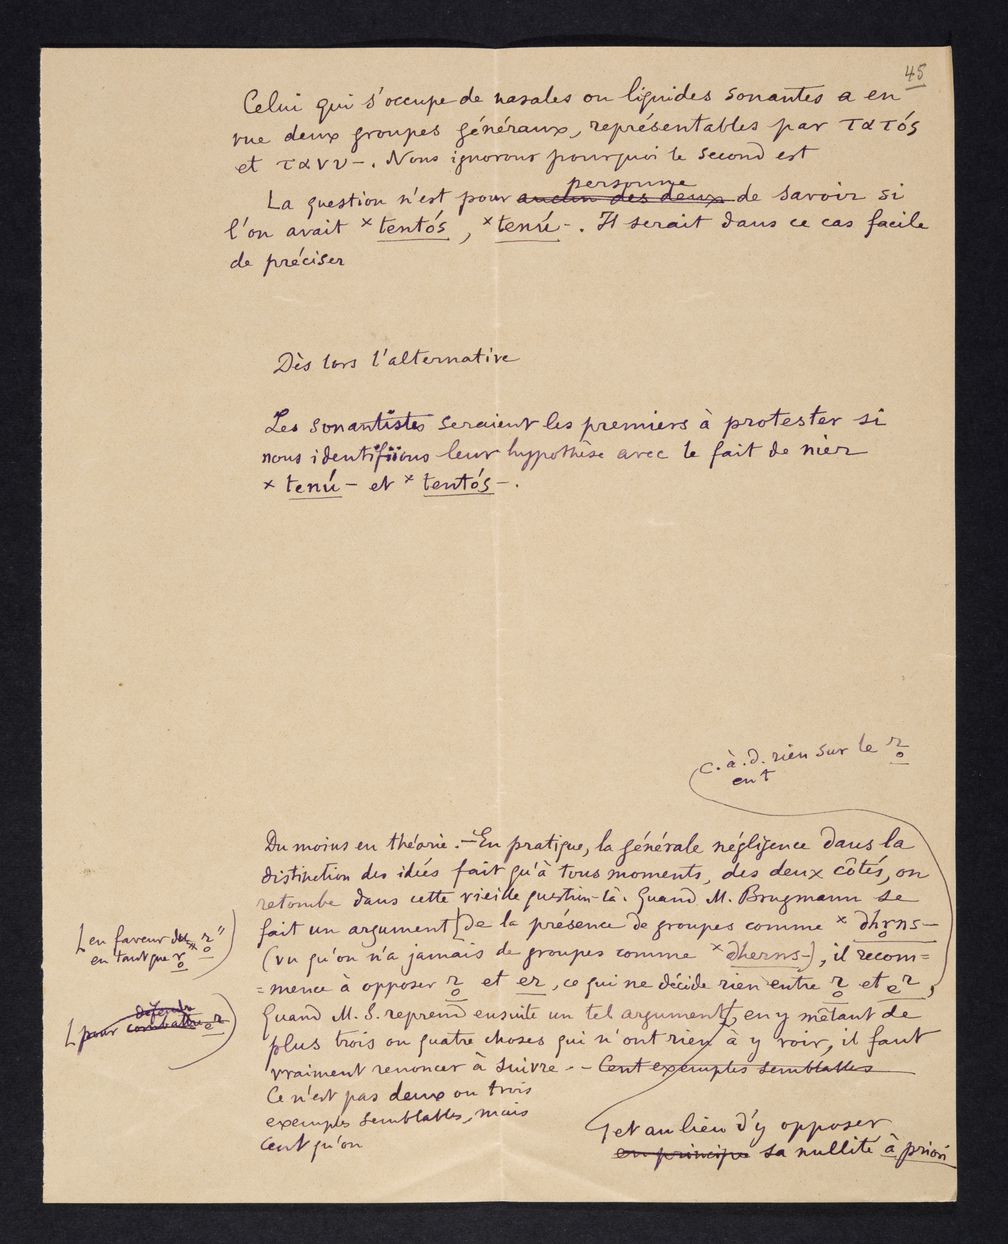 45
Celui qui s'occupe de nasales ou liquides sonantes a en
vue deux groupes généraux, représentables par τατός
et τανυ-. Nous ignorons pourquoi le second est
personne
La question n'est pour aucun des deux de savoir si
l'on avait ˣtentós, ˣtenú-. Il serait dans ce cas facile
de préciser
Dès lors l'alternative
Les sonantistes seraient les premiers à protester si
nous identifiions leur hypothèse avec le fait de nier
ˣ tenú- et ˣ tentós-.
c. à. d. rien sur le r̥
en t
Du moins en théorie. — En pratique, la générale négligence dans la
distinction des idées fait qu'à tous moments, des deux côtés, on
retombe dans cette vieille question-là. Quand M. Brugmann se
fait un argument [de la présence de groupes comme ˣ dhr̥ns-
[en faveur du "r̥"
en tant que r̥)
(vu qu'on n'a jamais de groupes comme ˣdherns-), il recom=
=mence à opposer r̥ et er, ce qui ne décide rien entre r̥ et ₑr,
défendre
[pour combattre er)
Quand M. S. reprend ensuite un tel argument, en y mêlant de
plus trois ou quatre choses qui n'ont rien à y voir, il faut
vraiment renoncer à suivre. - Cent exemples semblables
Ce n'est pas deux ou trois
exemples semblables, mais
cent qu'on
et au lieu d'y opposer
en principe sa nullité à priori